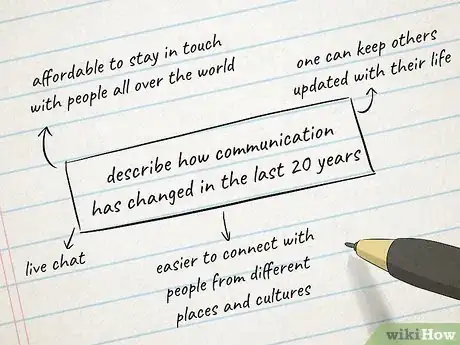 affordable to stay in touch
with people all over the world
one can keep others
updated with their life
describe how communication
has changed in the last 20 years
live chat
easier to connect with
people from different
places and cultures
wikiHow